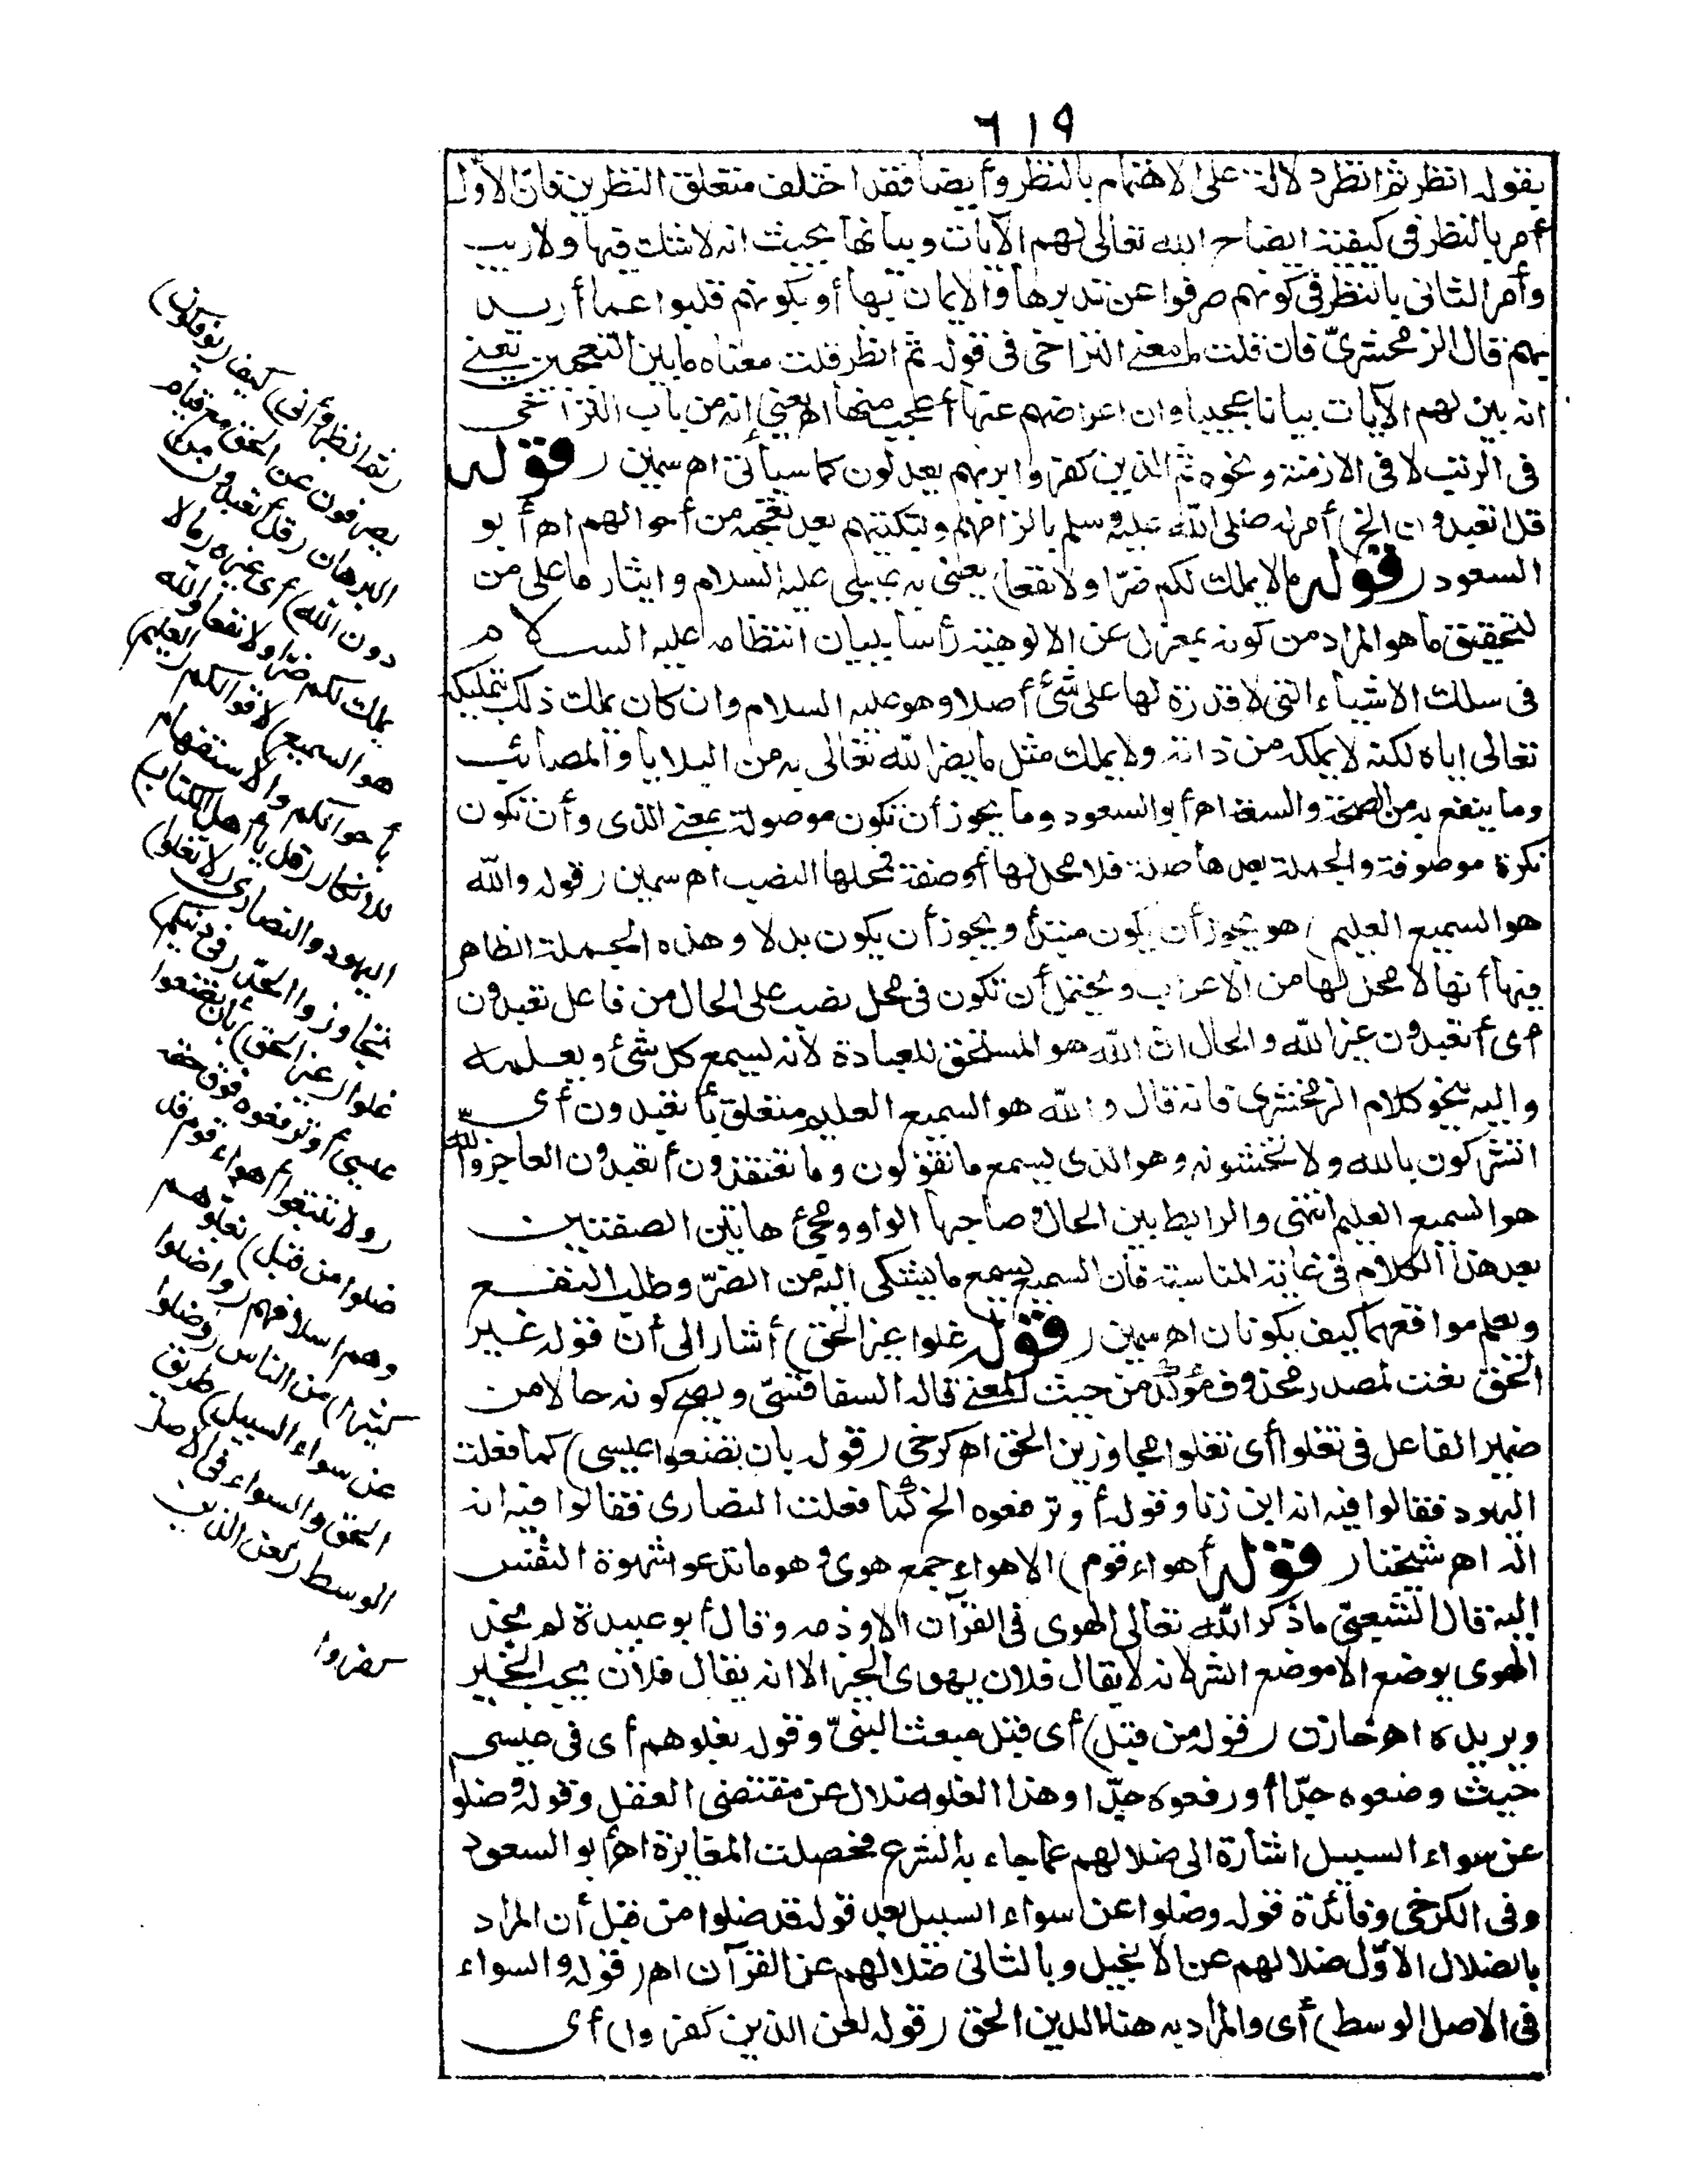 ٦١٩
بقوله انظر ثم انظر دلالة على الاهتمام بالنظر وأيضا فقد اختلف متعلق النظرين فان الأول
أمر بالنظر فى كيفية ايضاح الله تعالى لهم الآيات وبيانها بحيث انه لا شك فيها ولا ريب
وأمر الثانى بالنظر فى كونهم صرفوا عن تدبرها والايمان بها أو بكونهم قلبوا عما أريد
بهم قال الزمخشرىّ فان قلت ما معنى التراخى فى قوله ثم انظر قلت معناه ما بين التعجبين يعنى
انه بين لهم الآيات بيانا عجيبا وان اعراضهم عنها أعجب منها اه يعنى انه من باب التراخى
فى الرتب لا فى الازمنة ونحوه ثم الذين كفروا بربهم يعدلون كما سيأتى اه سمين (قوله
قل أتعبدون الخ) أمر له صلى الله عليه وسلم بالزامهم وتبكيتهم بعد تعجبه من أحوالهم اه أبو
السعود (قوله ما لا يملك لكم ضرّا ولا نفعا) يعنى به عيسى عليه السلام وايثار ما على من
لتحقيق ما هو المراد من كونه بمعزل عن الالوهية رأسا ببيان انتظامه عليه السلام
فى سلك الاشياء التى لا قدرة لها على شئ أصلا وهو عليه السلام وان كان يملك ذلك بتمليكه
تعالى اياه لكنه لا يملكه من ذاته ولا يملك مثل ما يضر الله تعالى به من البلايا والمصائب
وما ينفع به من الصحة والسعة اه أبو السعود وما يجوز أن تكون موصولة بمعنى الذى وأن تكون
نكرة موصوفة والجملة بعدها صلة فلا محل لها أو صفة فمحلها النصب اه سمين (قوله والله
هو السميع العليم) هو يجوز أن يكون مبتدأ ويجوز أن يكون بدلا وهذه الجملة الظاهر
فيها أنها لا محل لها من الاعراب ويحتمل أن تكون فى محل نصب على الحال من فاعل تعبدون
أى أتعبدون غير الله والحال ان الله هو المستحق للعبادة لأنه يسمع كل شئ ويعلمه
واليه ينحو كلام الزمخشرى فانه قال والله هو السميع العليم متعلق بأتعبدون أى
اتشركون بالله ولا تخشونه وهو الذى يسمع ما تقولون وما تعتقدون أتعبدون العاجز والله
هو السميع العليم انتهى والرابط بين الحال وصاحبها الواو ومجئ هاتين الصفتين
بعد هذا الكلام فى غاية المناسبة فان السميع يسمع ما يشتكى اليه من الضرّ وطلب النفع
ويعلم مواقعهما كيف يكونان اه سمين (قوله غلوا غير الحق) أشار الى أن قوله غير
الحق نعت لمصدر محذوف مؤكد من حيث المعنى قاله السفاقسىّ ويصح كونه حالا من
ضمير الفاعل فى تغلوا أى تغلوا مجاوزين الحق اه كرخى (قوله بان تضعوا عيسى) كما فعلت
اليهود فقالوا فيه انه ابن زنا وقوله أو ترفعوه الخ كما فعلت النصارى فقالوا فيه انه
اله اه شيخنا (قوله أهواء قوم) الاهواء جمع هوى وهو ما تدعو شهوة النفس
اليه قال الشعبىّ ما ذكر الله تعالى الهوى فى القرآن الا وذمه وقال أبو عبيدة لم نجد
الهوى يوضع الا موضع الشر لانه لا يقال فلان يهوى الخير الا انه يقال فلان يحب الخير
ويريده اه خازن (قوله من قبل) أى قبل مبعث النبىّ وقوله بغلوهم أى فى عيسى
حيث وضعوه جدّا أو رفعوه جدّا وهذا الغلو ضلال عن مقتضى العقل وقوله وضلوا
عن سواء السبيل اشارة الى ضلالهم عما جاء به الشرع فحصلت المغايرة اه أبو السعود
وفى الكرخى وفائدة قوله وضلوا عن سواء السبيل بعد قوله قد ضلوا من قبل أن المراد
بالضلال الاوّل ضلالهم عن الانجيل وبالثانى ضلالهم عن القرآن اه (قوله والسواء
فى الاصل الوسط) أى والمراد به هنا الدين الحق (قوله لعن الذين كفروا) أى
(ثم انظر أنى) كيف (يؤفكون)
يصرفون عن الحق مع قيام
البرهان (قل أتعبدون من
دون الله) أى غيره (ما لا
يملك لكم ضرّا ولا نفعا والله
هو السميع) لاقوالكم (العليم)
بأحوالكم والاستفهام
للانكار (قل يا أهل الكتاب)
اليهود والنصارى (لا تغلوا)
تتجاوزوا الحدّ (فى دينكم)
غلوا (غير الحق) بأن تضعوا
عيسى أو ترفعوه فوق حقه
(ولا تتبعوا أهواء قوم قد
ضلوا من قبل) بغلوهم
وهم اسلافهم (وأضلوا
كثيرا) من الناس (وضلوا
عن سواء السبيل) طريق
الحق والسواء فى الاصل
الوسط (لعن الذين
كفروا